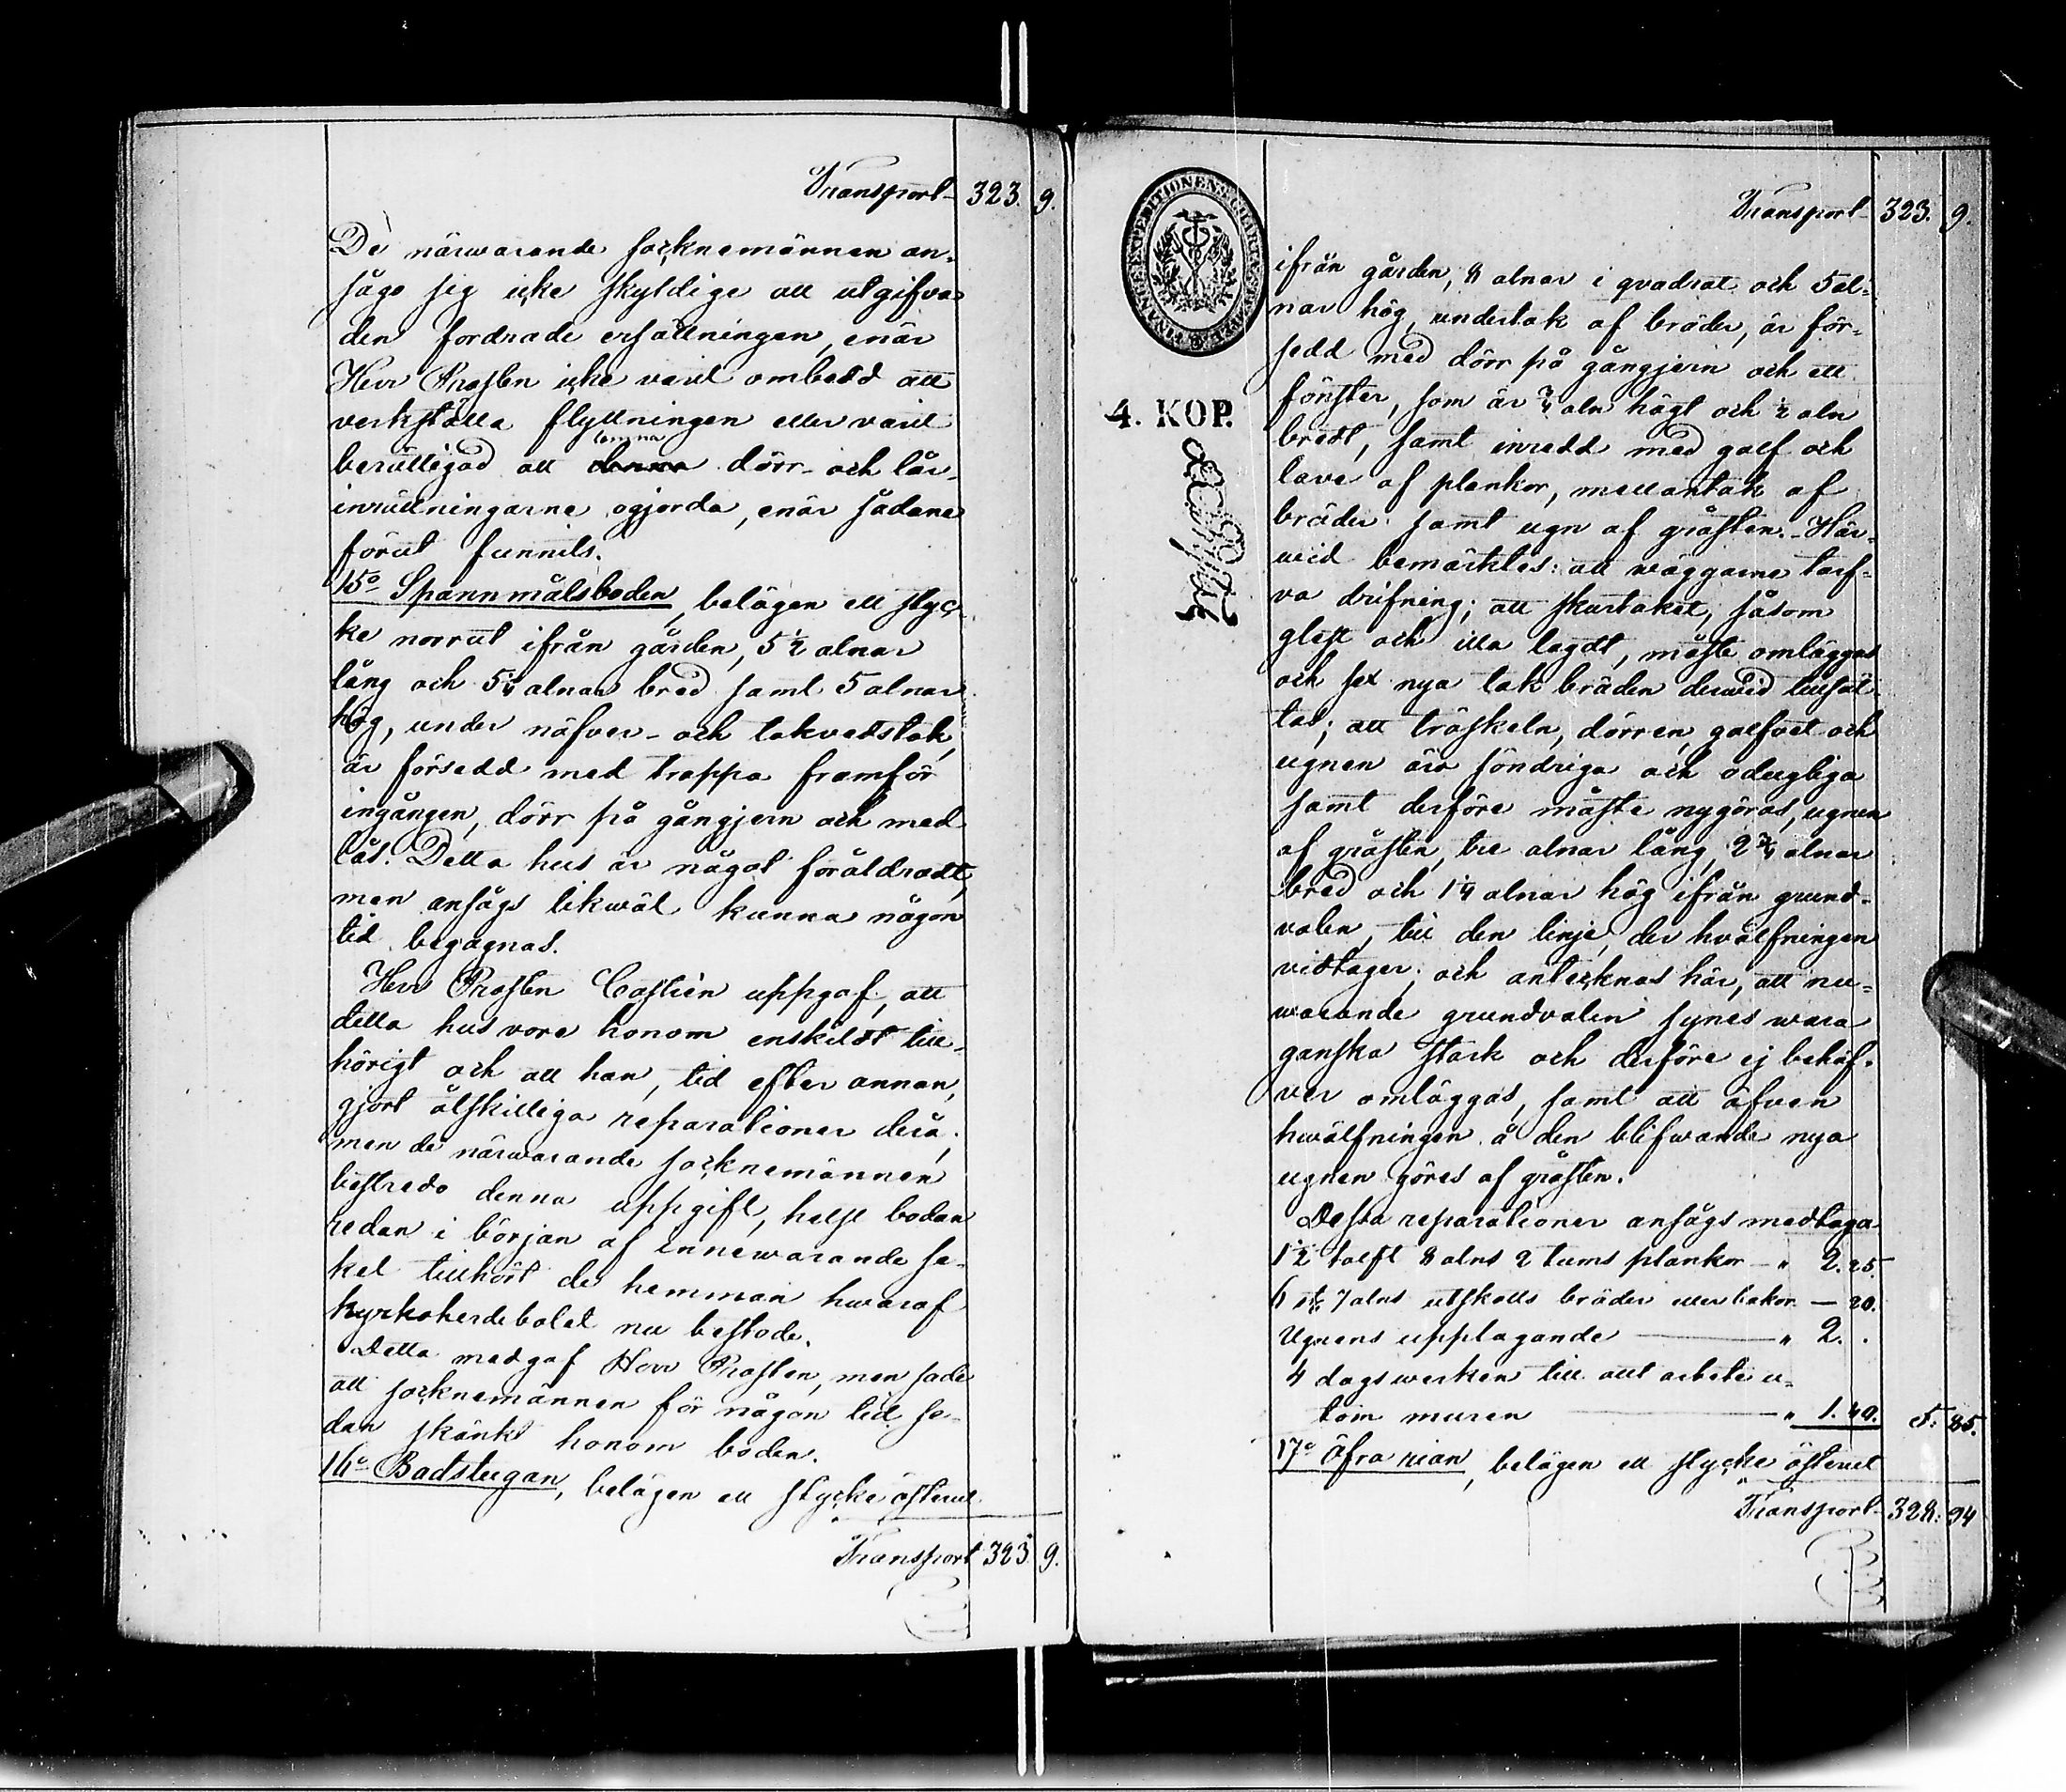 Transport 323. 9.
De närwarande socknemännen an-
sågo sig icke skyldige att utgifva
den fordrade ersättningen, enär
Herr Prosten icke varit ombedd att
verkställa flyttningen eller varit
lemna
berättigad att dörr- och lår-
inrättningarne ogjorda, enär sådane
förut funnits.
15o Spannmålsboden, belägen ett styc-
ke norrut ifrån gården, 5 1/2 alnar
lång och 5 1/4 alnar bred samt 5 alnar
hög, under näfver- och takvedstak,
är försedd med trappa framför
ingången, dörr på gångjern och med
lås. Detta hus är något föråldradt,
men ansågs likwäl kunna någon
tid begagnas.
Herr Prosten Castrén uppgaf, att
detta hus vore honom enskildt till-
hörigt och att han, tid efter annan,
gjort åtskilliga reparationer derå;
men de närwarande socknemännen
bestredo denna uppgift, helst bodan
redan i början af innewarande se-
kel tillhört de hemman hwaraf
kyrkoherdebolet nu bestode.
Detta medgaf Herr Prosten, men sade
att socknemännen för någon tid se-
dan skänkt honom boden.
16o Badstugan, belägen ett stycke österut
Transport 323 9.
FINANCE EXPEDITIONENS CHARTÆ
4. KOP.
Transport 323. 9.
ifrån gården, 8 alnar i qvadrat och 5 al-
nar hög, undertak af bräder, är för-
sedd med dörr på gångjern och ett
fönster, som är 3/4 aln högt och 1/2 aln
bredt, samt inredd med golf och
lave af plankor, mellantak af
bräder samt ugn af gråsten. Här-
wid bemärktes: att wäggarne tarf-
va drifning; att skurtaket, såsom
glest och illa lagdt, måste omläggas
och sex nya tak bräden derwid tillsät-
tas; att tröskeln, dörren, golfvet och
ugnen äro söndriga och odugliga
samt derföre måste nygöras, ugnen
af gråsten, tre alnar lång, 2 3/4 alnar
bred och 1 1/4 alnar hög ifrån grund-
valen, till den linje, der hvälfningen
vidtager; och antecknas här, att nu-
warande grundvalen synes wara
ganska stark och derföre ej behöf-
ver omläggas, samt att äfven
hwälfningen å den blifwande nya
ugnen göres af gråsten.
Dessa reparationer ansågs medtaga
1 1/2 tolft 8 alns 2 tums plankor — " 2. 25.
6 st. 7 alns utskotts bräder eller bakar — 20.
Ugnens upptagande — " 2. .
4 dagswerken till att arbeta u-
tom muren — " 1. 40. 5. 85.
17o Öfra rian, belägen ett stycke österut
Transport 328. 94